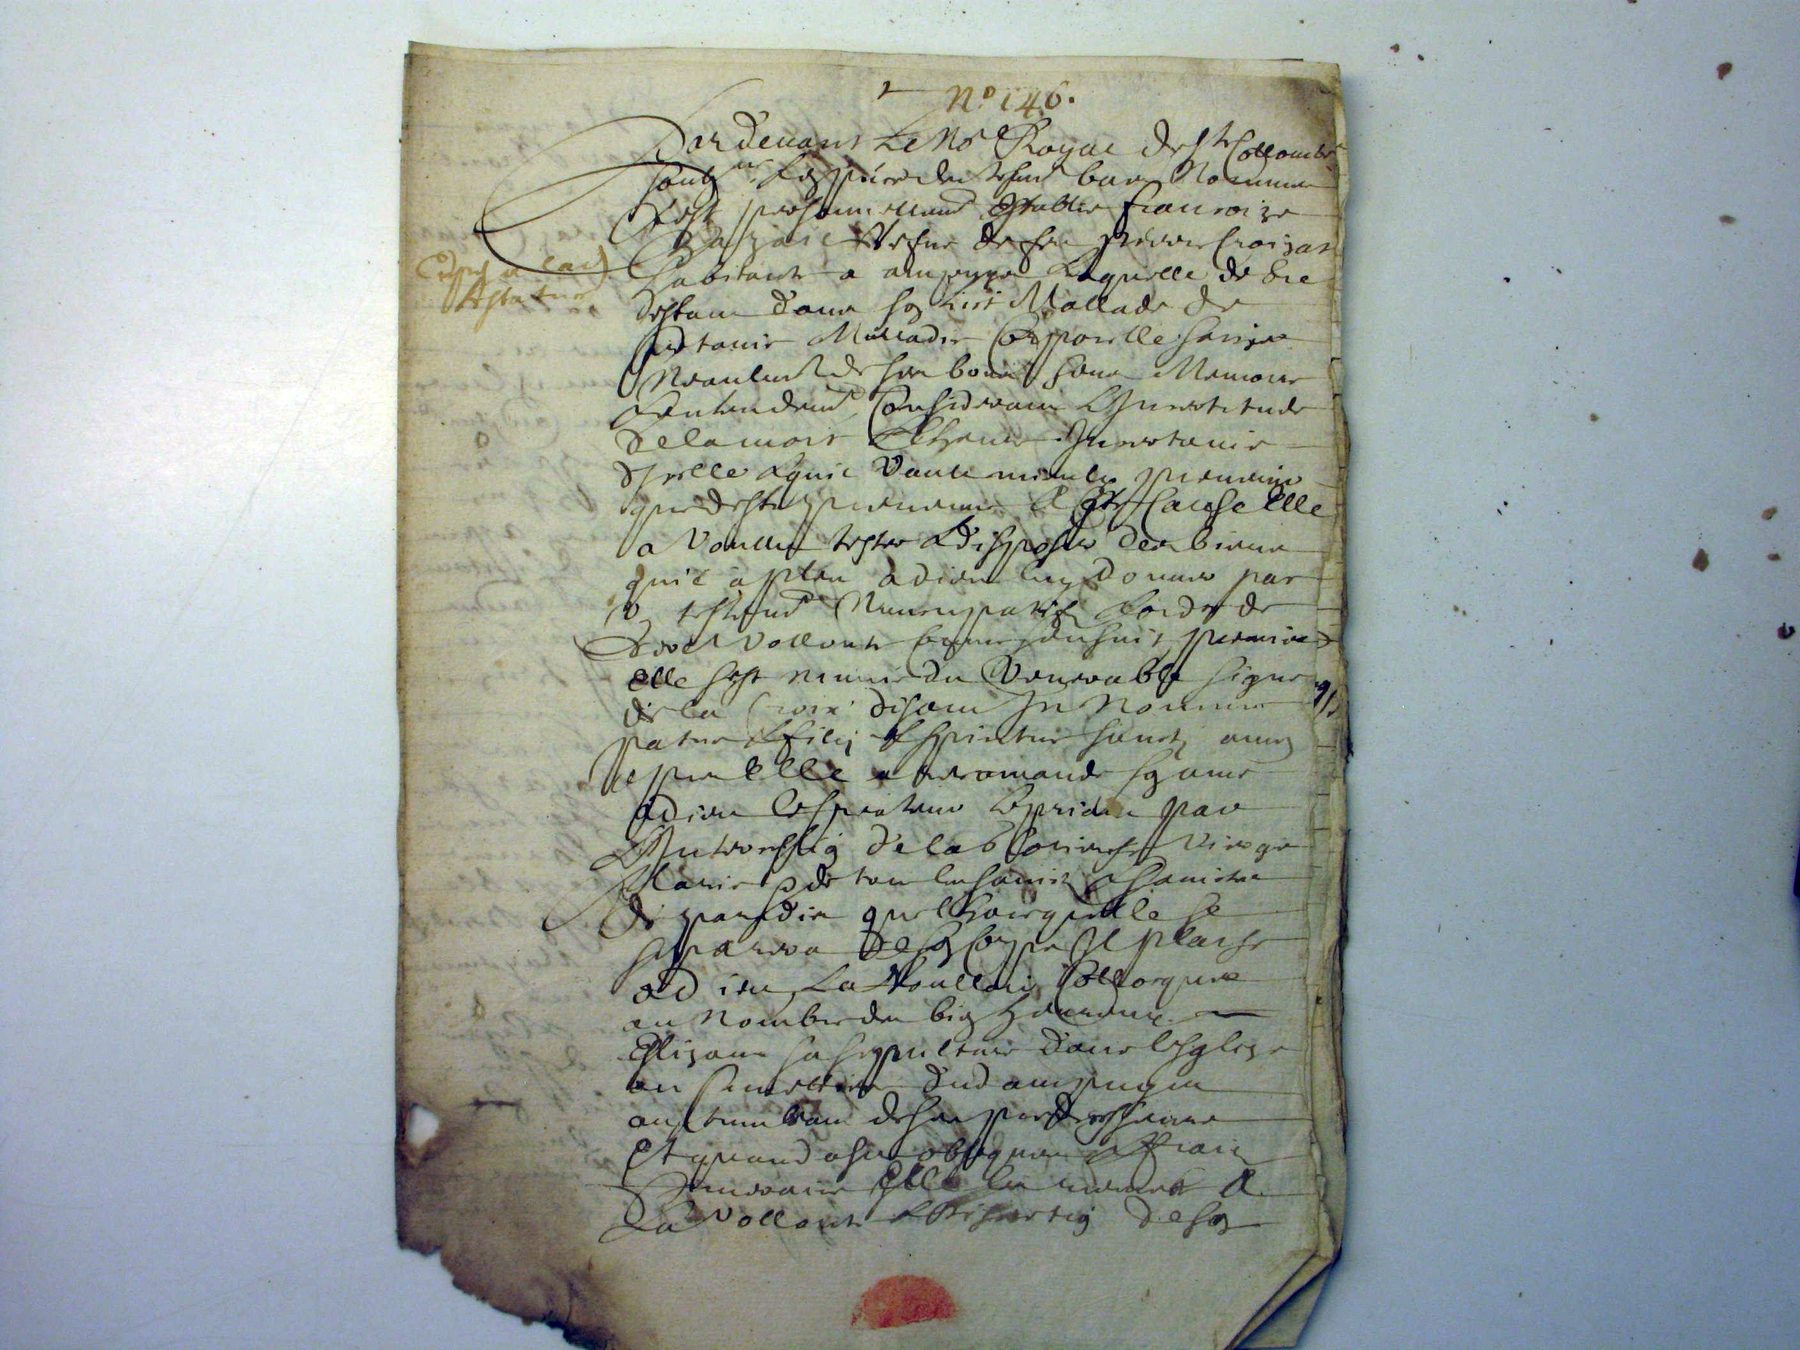 N° 146.
Par devant Le No.re Royal de S.te Collombe
soubz.né presens les tesmoins bas Nommes
s'est personnellement establie francoize
vefve de feu pierre Croizat
habitante a ampuys Laquelle de Gre
estant dans son Lict Mallade de
certaine Malladie Corporelle saine
Neantmoins de ses bons sens Memoire
et entendement, Considerant L'Incertitude
de la mort & l'heure Incertaine
d'Icelle & quil vault mieulx prevenir
que d'estre prevenu A C.te Cause Elle
a voullu tester & disposer des biens
quil a pleu a dieu luy donner par
son testament Nuncupatif & ordre de
derre volonté comme s'ensuit, premierem.t
elle s'est munie du Venerable signe
de la Croix disant In Nomine
patris & filij & spiritus sancti amen
depuis Elle a recomandé son ame
a dieu le createur Le priant par
L'Intercession de la Glorieuse Vierge
Marie & de tous les saincts & sainctes
de paradis que lhors quelle se
separera de son Corps Il plaise
a dieu La Voulloir Collocquer
au Nombre des bien heureux
Eslizant sa sepulture dans l'Esglize
ou simettiere dud ampuys
au tumbeau de ses predecesseurs
Et quand a ses obseques & fraiz
funeraires Elle les remet A
La vollonté & discretion de son